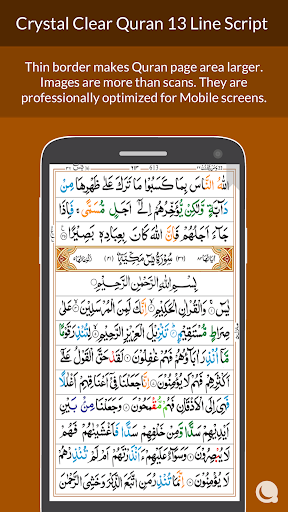 Crystal Clear Quran 13 Line Script
Thin border makes Quran page area larger.
Images are more than scans. They are
professionally optimized for Mobile screens.
اللهُ النَّاسَ بِمَا كَسَبُوْا مَا تَرَكَ عَلٰى ظَهْرِهَا مِنْ
دَآبَّةٍ وَّلٰكِنْ يُّؤَخِّرُهُمْ اِلٰٓى اَجَلٍ مُّسَمًّى ۚ فَاِذَا
جَآءَ اَجَلُهُمْ فَاِنَّ اللهَ كَانَ بِعِبَادِهٖ بَصِيْرًا
بِسْمِ اللهِ الرَّحْمٰنِ الرَّحِيْمِ
يٰسٓ ۚ وَالْقُرْاٰنِ الْحَكِيْمِ ۙ اِنَّكَ لَمِنَ الْمُرْسَلِيْنَ ۙ عَلٰى
صِرَاطٍ مُّسْتَقِيْمٍ ؕ تَنْزِيْلَ الْعَزِيْزِ الرَّحِيْمِ ۙ لِتُنْذِرَ قَوْمًا
مَّآ اُنْذِرَ اٰبَآؤُهُمْ فَهُمْ غٰفِلُوْنَ لَقَدْ حَقَّ الْقَوْلُ عَلٰٓى
اَكْثَرِهِمْ فَهُمْ لَا يُؤْمِنُوْنَ اِنَّا جَعَلْنَا فِيْٓ اَعْنَاقِهِمْ اَغْلٰلًا
فَهِيَ اِلَى الْاَذْقَانِ فَهُمْ مُّقْمَحُوْنَ وَجَعَلْنَا مِنْۢ بَيْنِ
اَيْدِيْهِمْ سَدًّا وَّمِنْ خَلْفِهِمْ سَدًّا فَاَغْشَيْنٰهُمْ فَهُمْ لَا
يُبْصِرُوْنَ وَسَوَآءٌ عَلَيْهِمْ ءَاَنْذَرْتَهُمْ اَمْ لَمْ تُنْذِرْهُمْ
لَا يُؤْمِنُوْنَ اِنَّمَا تُنْذِرُ مَنِ اتَّبَعَ الذِّكْرَ وَخَشِيَ الرَّحْمٰنَ